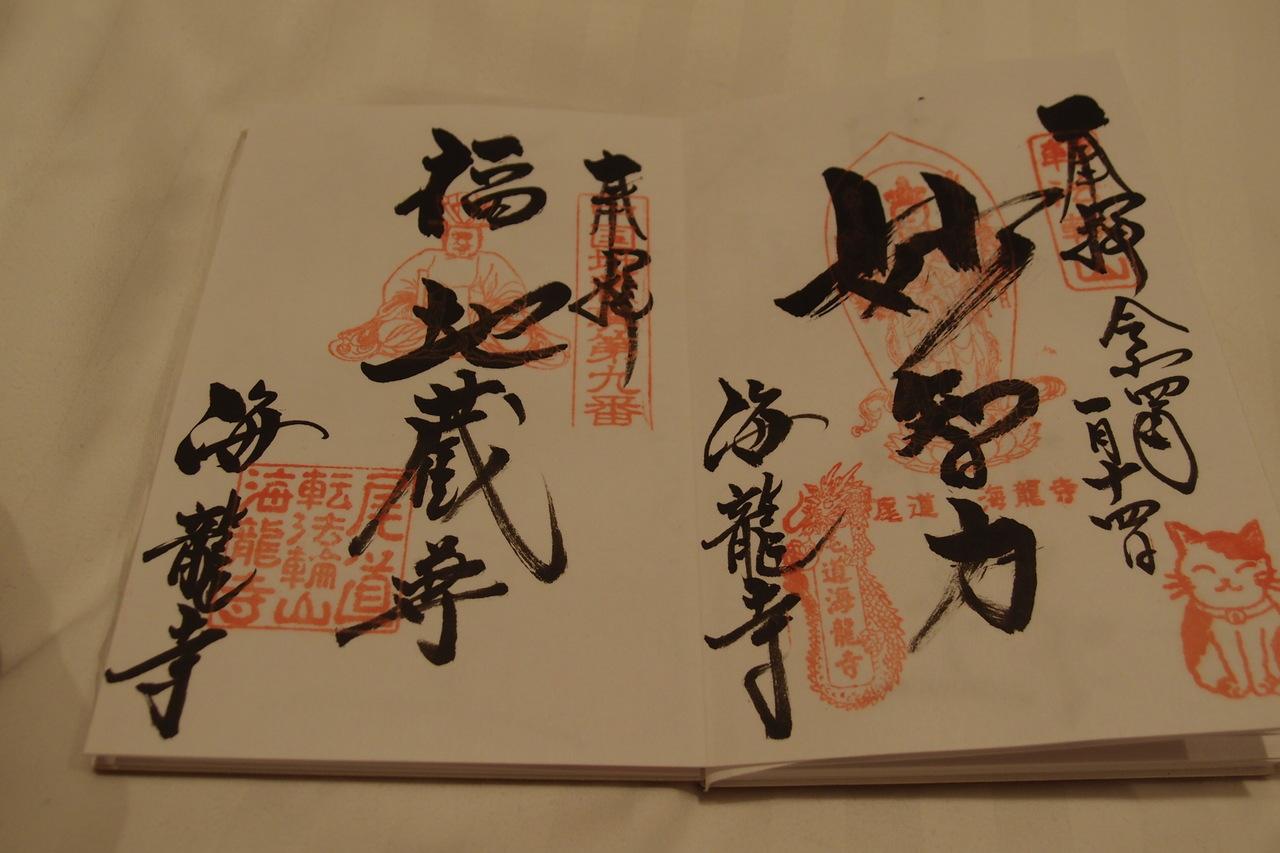 奉拝
令和四年
一月十四日
妙智力
尾道 海龍寺
尾道海龍寺
海龍寺
奉拝
第九番
福地蔵尊
尾道
転法輪山
海龍寺
海龍寺